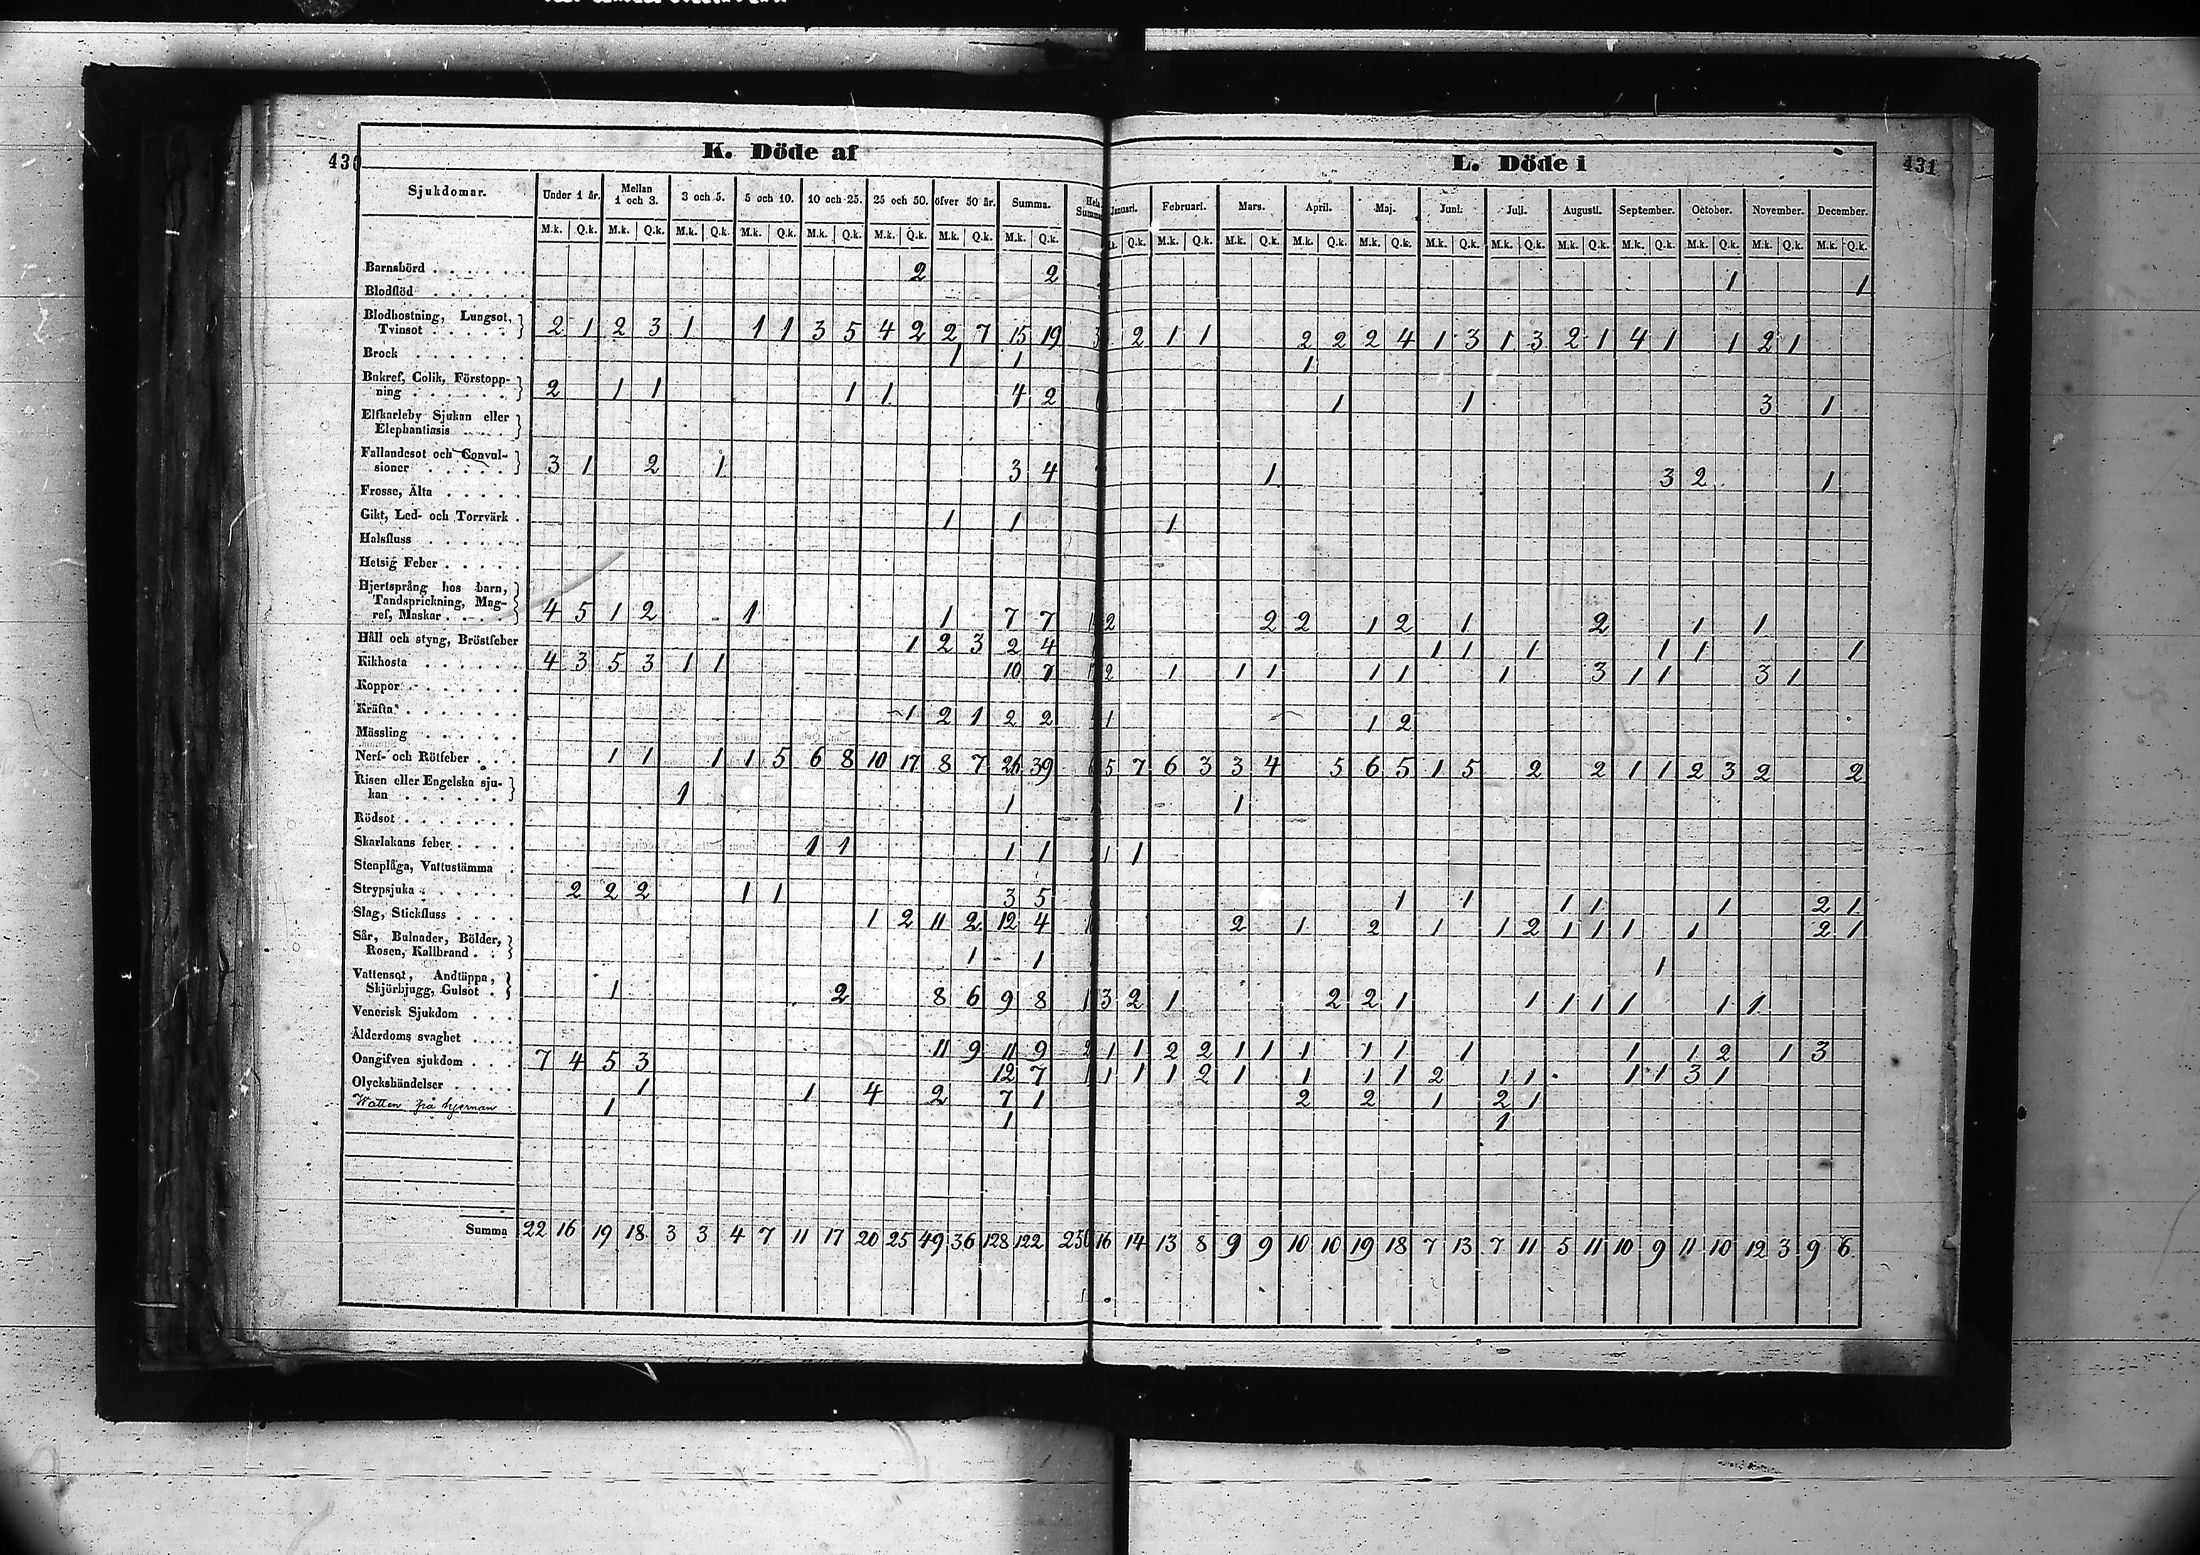 430 K. Döde af L. Döde i 431
Sjukdomar. Under 1 år. Mellan 1 och 3. 3 och 5. 5 och 10. 10 och 25. 25 och 50. öfver 50 år. Summa. Januari. Februari. Mars. April. Maj. Juni. Juli. Augusti. September. October. November. December.
M.k. Q.k. M.k. Q.k. M.k. Q.k. M.k. Q.k. M.k. Q.k. M.k. Q.k. M.k. Q.k. M.k. Q.k. Q.k. M.k. Q.k. M.k. Q.k. M.k. Q.k. M.k. Q.k. M.k. Q.k. M.k. Q.k. M.k. Q.k. M.k. Q.k. M.k. Q.k. M.k. Q.k. M.k. Q.k.
Barnsbörd 2 2 1 1
Blodflöd
Blodhostning, Lungsot,
Tvinsot 2 1 2 3 1 1 1 3 5 4 2 2 7 15 19 3 2 1 1 2 2 2 4 1 3 1 3 2 1 4 1 1 2 1
Brock 1 1 1
Bukref, Colik, Förstopp-
ning 2 1 1 1 1 4 2 1 1 3 1
Elfkarleby Sjukan eller
Elephantiasis
Fallandesot och Convul-
sioner 3 1 2 1 3 4 1 3 2 1
Frosse, Älta
Gikt, Led- och Torrvärk 1 1 1
Halsfluss
Hetsig Feber
Hjertsprång hos barn,
Tandsprickning, Mag-
ref, Maskar 4 5 1 2 1 1 7 7 2 2 2 1 2 1 2 1 1
Håll och styng, Bröstfeber 1 2 3 2 4 1 1 1 1 1 1
Kikhosta 4 3 5 3 1 1 10 7 2 1 1 1 1 1 1 3 1 1 3 1
Koppor
Kräfta 1 2 1 2 2 1 1 2
Mässling
Nerf- och Rötfeber 1 1 1 1 5 6 8 10 17 8 7 26 39 5 7 6 3 3 4 5 6 5 1 5 2 2 1 1 2 3 2 2
Risen eller Engelska sju-
kan 1 1 1
Rödsot
Skarlakans feber 1 1 1 1 1 1
Stenplåga, Vattustämma
Strypsjuka 2 2 2 1 1 3 5 1 1 1 1 1 2 1
Slag, Stickfluss 1 2 11 2 12 4 2 1 2 1 1 2 1 1 1 1 2 1
Sår, Bulnader, Bölder,
Rosen, Kallbrand 1 1 1
Vattensot, Andtäppa,
Skjörbjugg, Gulsot 1 2 8 6 9 8 1 3 2 1 2 2 1 1 1 1 1 1 1
Venerisk Sjukdom
Ålderdoms svaghet 11 9 11 9 2 1 1 2 2 1 1 1 1 1 1 1 1 2 1 3
Oangifven sjukdom 7 4 5 3 12 7 1 1 1 1 2 1 1 1 1 2 1 1 1 1 3 1
Olyckshändelser 1 1 4 2 7 1 2 2 1 2 1
Watten på hjernan 1 1 1
Summa 22 16 19 18 3 3 4 7 11 17 20 25 49 36 128 122 250 16 14 13 8 9 9 10 10 19 18 7 13 7 11 5 11 10 9 11 10 12 3 9 6